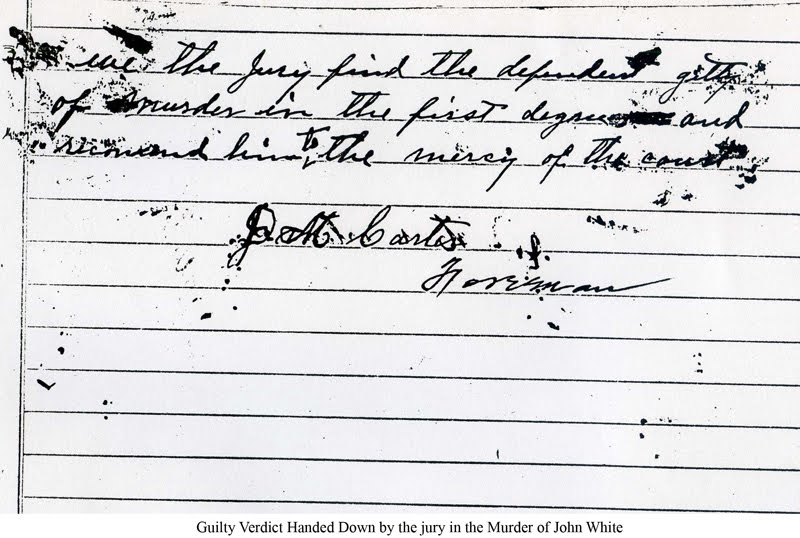 we the Jury find the dependent gilty
of murder in the first degree and
recomend him to the mercy of the court
J M Carter
Foreman
Guilty Verdict Handed Down by the jury in the Murder of John White